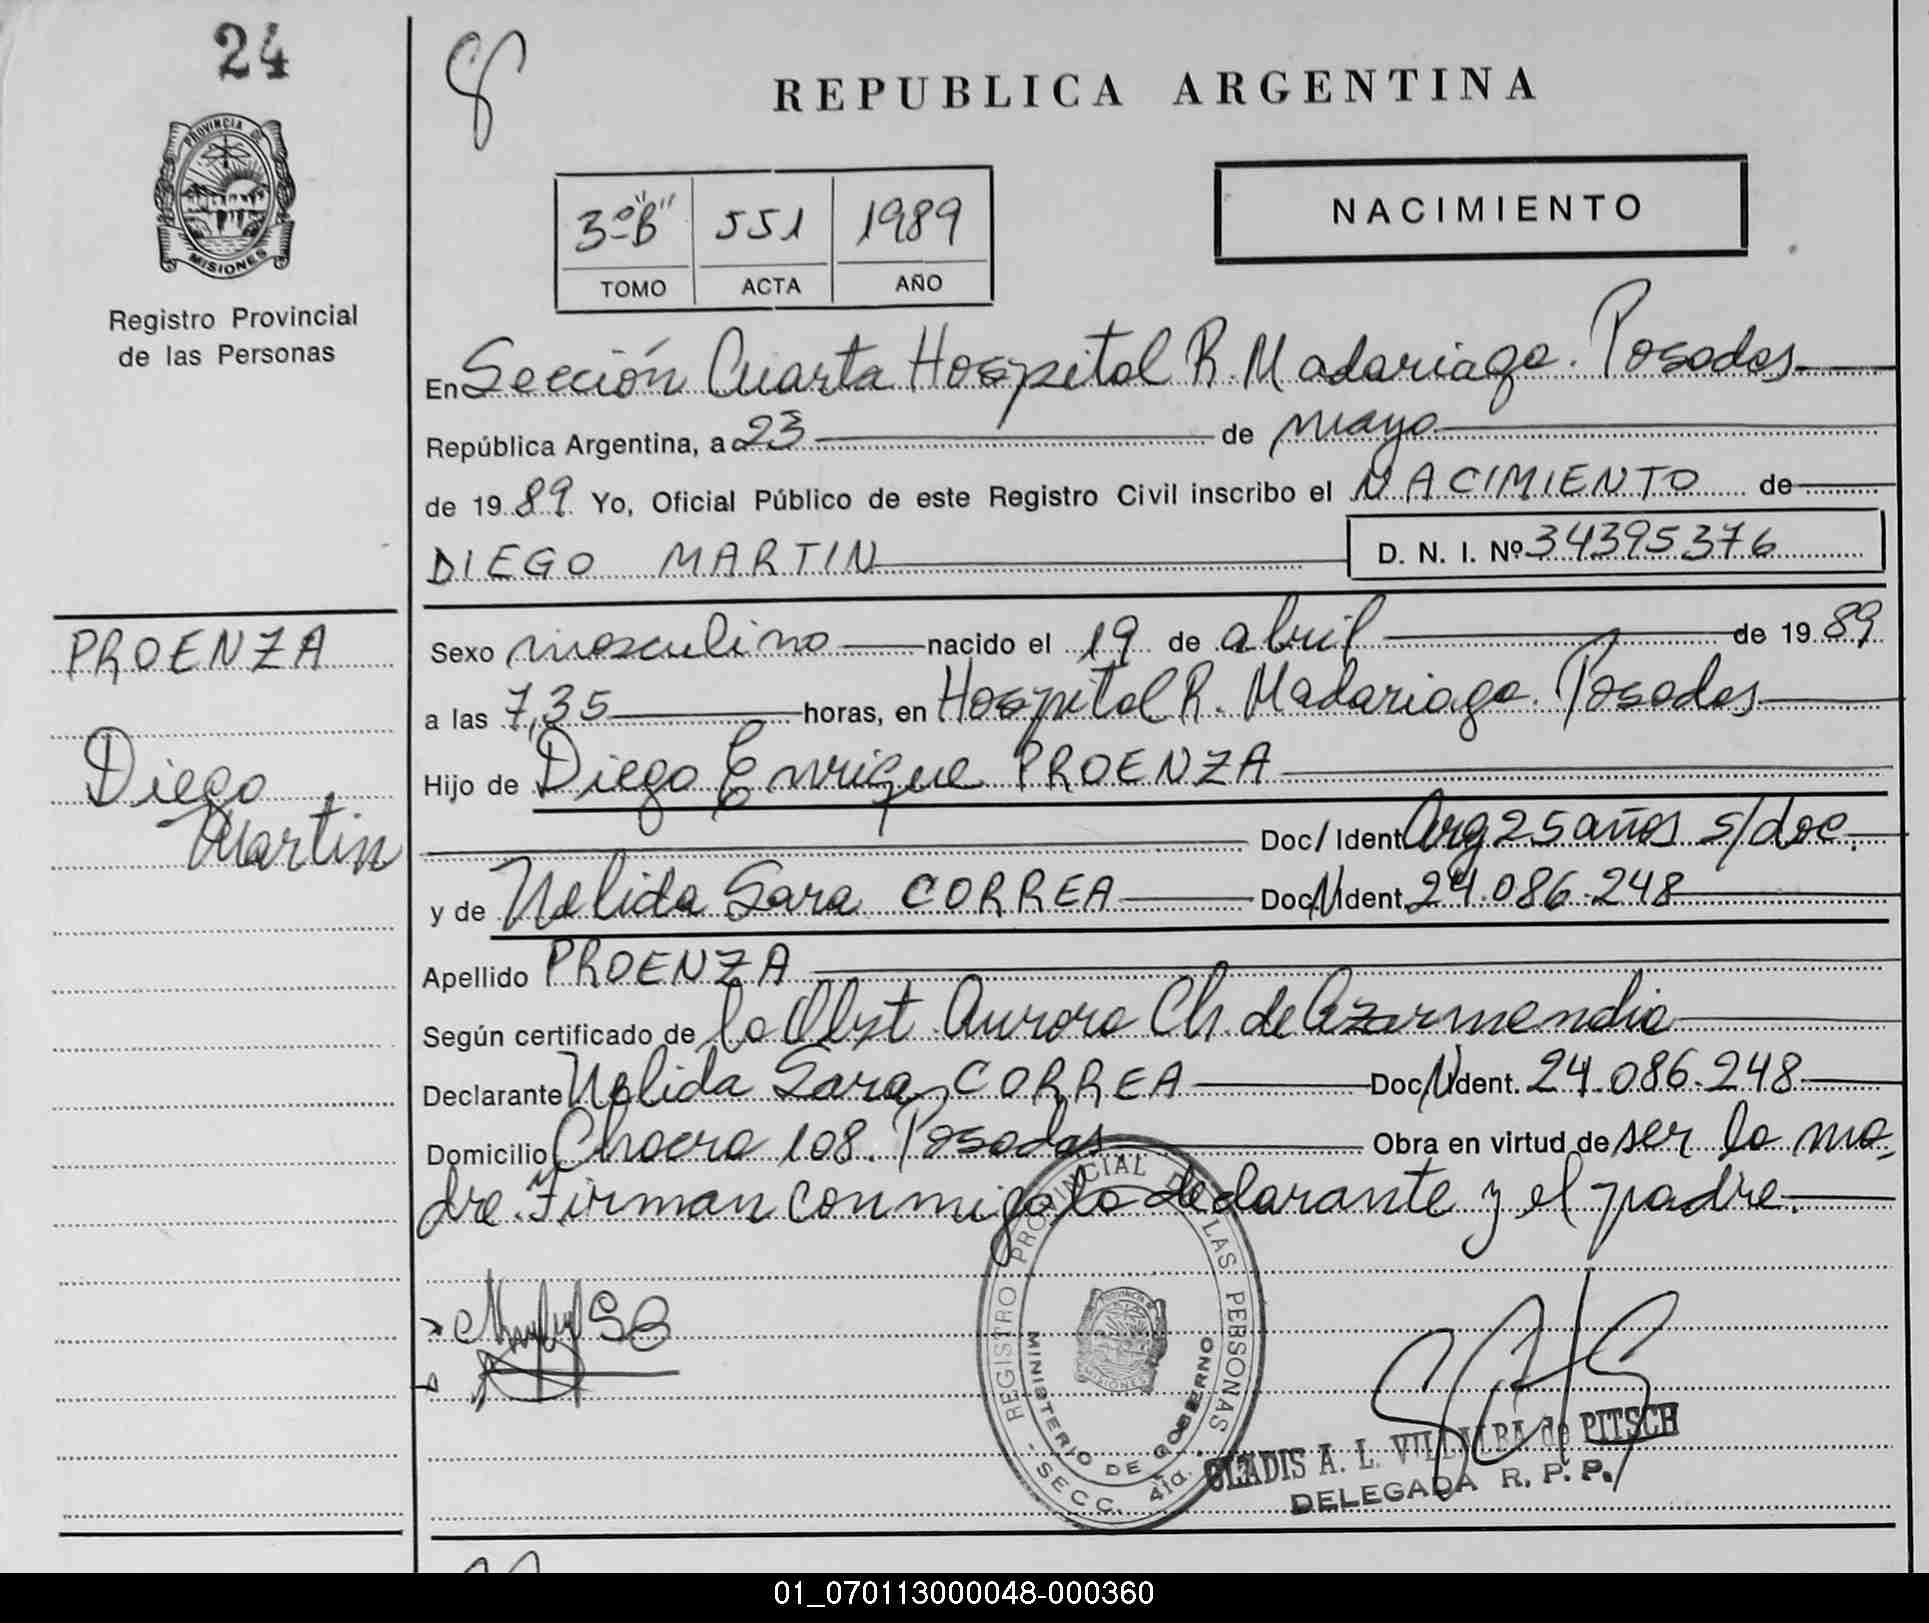 24
PROVINCIA DE
MISIONES
Registro Provincial
de las Personas
REPUBLICA ARGENTINA
3º"B" 551 1989
TOMO ACTA AÑO
NACIMIENTO
En Sección Cuarta Hospital R. Madariaga. Posadas
República Argentina, a 23 de mayo
de 1989 Yo, Oficial Público de este Registro Civil inscribo el NACIMIENTO de
DIEGO MARTIN D. N. I. Nº 34395376
PROENZA
Diego
Martin
Sexo masculino nacido el 19 de abril de 1989
a las 7,35 horas, en Hospital R. Madariaga. Posadas
Hijo de Diego Enrique PROENZA
Doc/Ident. Arg 25 años s/doc.
y de Nelida Sara CORREA Doc/Ident. 24.086.248
Apellido PROENZA
Según certificado de la Obst. Aurora Ch. de Azarmendia
Declarante Nelida Sara CORREA Doc/Ident. 24.086.248
Domicilio Chacra 108. Posadas Obra en virtud de ser la ma-
dre. Firman conmigo la declarante y el padre.
REGISTRO PROVINCIAL DE LAS PERSONAS
MINISTERIO DE GOBIERNO
- SECC. 4ta. -
GLADIS A. L. VILLALBA de PITSCH
DELEGADA R. P. P.
01_070113000048-000360